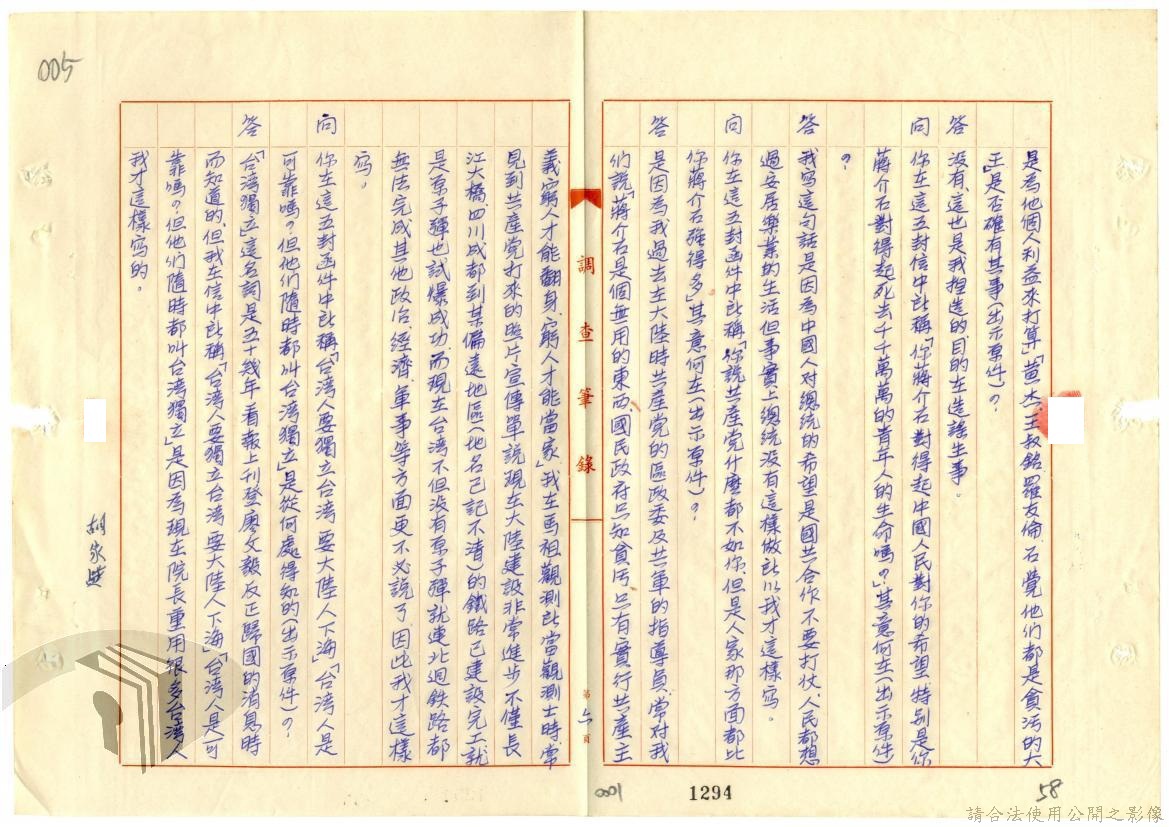 005
是為他個人利益來打算」「黃杰王叔銘羅友倫、石覺他们都是貪污的大
王」是否確有其事(出示原件)?
答 没有、這也是我捏造的、目的在造謠生事。
問 你在這五封信中所稱「你蔣介石對得起中國人民對你的希望、特别是你
蔣介石對得起死去千千萬萬的青年人的生命嗎?」其意何在(出示原件)
?
答 我寫這句話是因為中國人对總统的希望是國共合作不要打仗、人民都想
過安居樂業的生活但事實上總统没有這樣做所以我才這樣寫。
問 你在這五封函件中所稱「你說共產党什麽都不如你、但是人家那方面都比
你蔣介石強得多」其意何在(出示原件)?
答 是因為我過去在大陸時共產党的區政委及共軍的指導員、常对我
们說「蔣介石是個無用的東西、國民政府只知貪污只有實行共產主
義窮人才能翻身、窮人才能當家」我在馬祖觀測所當觀測士時、常
見到共產党打來的照片宣傳單說現在大陸建設非常進步不僅長
江大橋、四川成都到某偏遠地區(地名已記不清)的鐵路已建設完工就
是原子彈也試爆成功、而現在台湾不但没有原子彈就連北迴鉄路都
無法完成其他政治、經濟、軍事等方面更不必說了、因此我才這樣
寫。
問 你在這五封函件中所稱「台湾人要獨立台湾、要大陸人下海」「台湾人是
可靠嗎?但他们隨時都叫台湾獨立」是從何處得知的(出示原件)?
答 「台湾獨立」這名詞是五十幾年看報上刊登廖文毅反正歸國的消息時
而知道的、但我在信中所稱「台湾人要獨立台湾、要大陸人下海」「台湾人是可
靠嗎?但他们隨時都叫台湾獨立」是因為現在院長重用很多台湾人
我才這樣寫的。
調查筆錄
第 頁
胡
0001
1294
58
請合法使用公開之影像